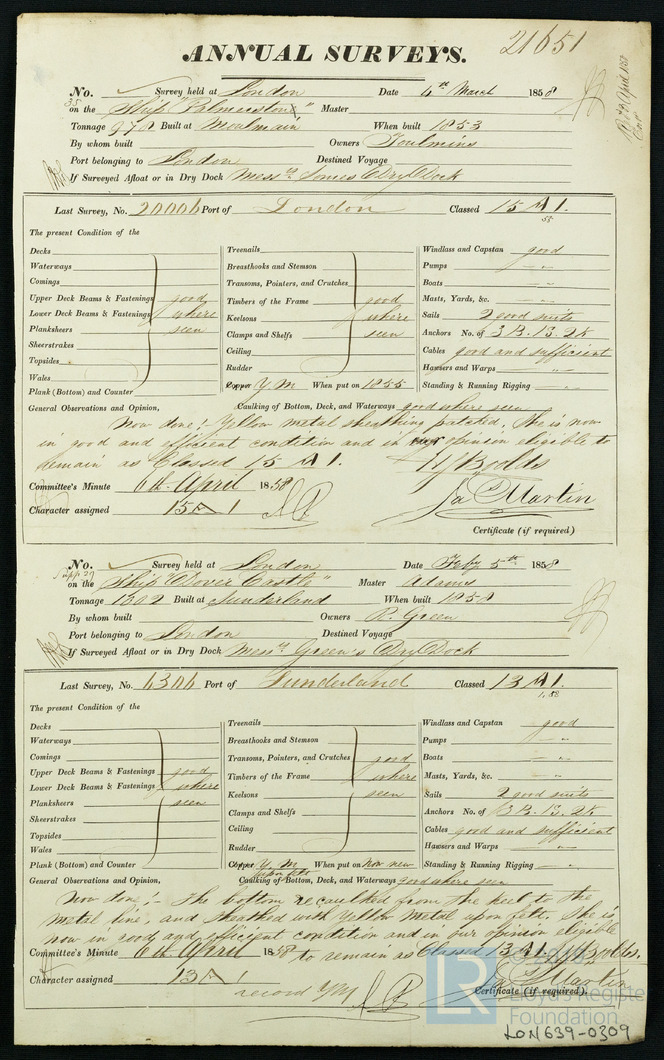 21651
ANNUAL SURVEYS.
No. Survey held at London Date 6th March 1858
35 on the Ship "Palmerston" Master
Tonnage 978 Built at Moulmain When built 1853
By whom built Owners Toulmins
Port belonging to London Destined Voyage
If Surveyed Afloat or in Dry Dock Messrs Somes Dry Dock
Last Survey, No. 20006 Port of London Classed 15 A 1.
55
The present Condition of the
Decks Treenails Windlass and Capstan good
Waterways Breasthooks and Stemson Pumps "
Comings Transoms, Pointers, and Crutches Boats "
Upper Deck Beams & Fastenings good Timbers of the Frame good Masts, Yards, &c. "
Lower Deck Beams & Fastenings where Keelsons where Sails 2 good suits
Planksheers seen Clamps and Shelfs seen Anchors No. of 3 B. 1 S. 2 K
Sheerstrakes Ceiling Cables good and sufficient
Topsides Rudder Hawsers and Warps "
Wales Copper Y M When put on 1855 Standing & Running Rigging "
Plank (Bottom) and Counter
General Observations and Opinion, Caulking of Bottom, Deck, and Waterways good where seen
Now done :- Yellow metal sheathing patched. She is now
in good and efficient condition and in our opinion eligible to
remain as Classed 15 A 1.
Committee's Minute 6th April 1858
Character assigned 15 A 1 Jas Martin
Certificate (if required)
No. Survey held at London Date Feby 5th 1858
Supp 27 on the Ship "Dover Castle" Master Adams
Tonnage 1002 Built at Sunderland When built 1858
By whom built Owners R. Green
Port belonging to London Destined Voyage
If Surveyed Afloat or in Dry Dock Messrs Green's Dry Dock
Last Survey, No. 6306 Port of Sunderland Classed 13 A 1.
1.58
The present Condition of the
Decks Treenails Windlass and Capstan good
Waterways Breasthooks and Stemson Pumps "
Comings Transoms, Pointers, and Crutches good Boats "
Upper Deck Beams & Fastenings good Timbers of the Frame where Masts, Yards, &c. "
Lower Deck Beams & Fastenings where Keelsons seen Sails 2 good suits
Planksheers seen Clamps and Shelfs Anchors No. of 3 B. 1 S. 2 K
Sheerstrakes Ceiling Cables good and sufficient
Topsides Rudder Hawsers and Warps "
Wales Copper Y. M upon felt When put on now new Standing & Running Rigging "
Plank (Bottom) and Counter
General Observations and Opinion, Caulking of Bottom, Deck, and Waterways good where seen
Now done :- The bottom recaulked from the keel to the
metal line, and sheathed with Yellow Metal upon felt. She is
now in good and efficient condition and in our opinion eligible
Committee's Minute 6th April 1858 to remain as Classed 13 A 1.
Character assigned 13 A 1 Jas Martin
record YM
Certificate (if required).
LR
Lloyd's Register
Foundation
LON639-0309